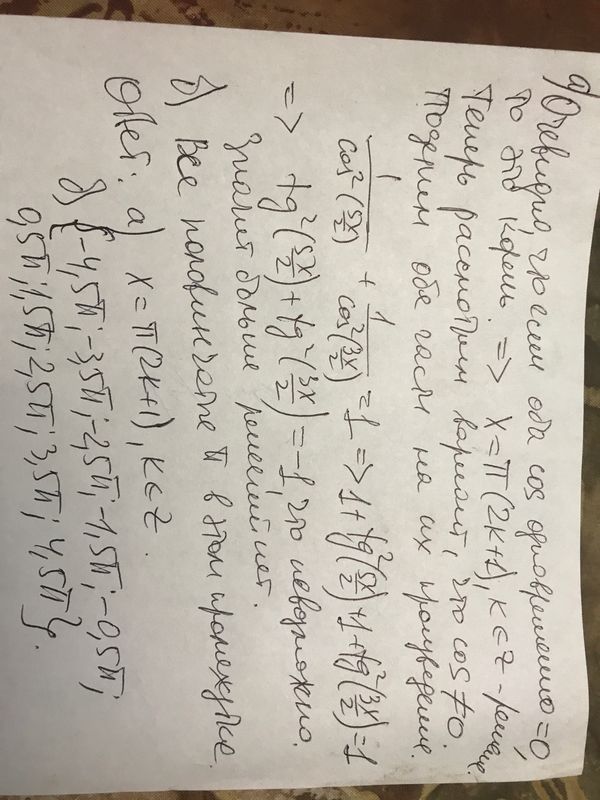 а) Очевидно, что если оба cos одновременно = 0,
то это корень. => x = π(2k+1), k∈Z - решение.
Теперь рассмотрим вариант, что cos≠0.
Поделим обе части на их произведение.
1/cos²(5x/2) + 1/cos²(3x/2) = 1 => 1 + tg²(5x/2) + 1 + tg²(3x/2) = 1
=> tg²(5x/2) + tg²(3x/2) = -1, что невозможно.
Значит больше решений нет.
б) Все половинчатые π в этом промежутке.
Ответ: а) x = π(2k+1), k∈Z.
б) {-4,5π; -3,5π; -2,5π; -1,5π; -0,5π;
0,5π; 1,5π; 2,5π; 3,5π; 4,5π}.